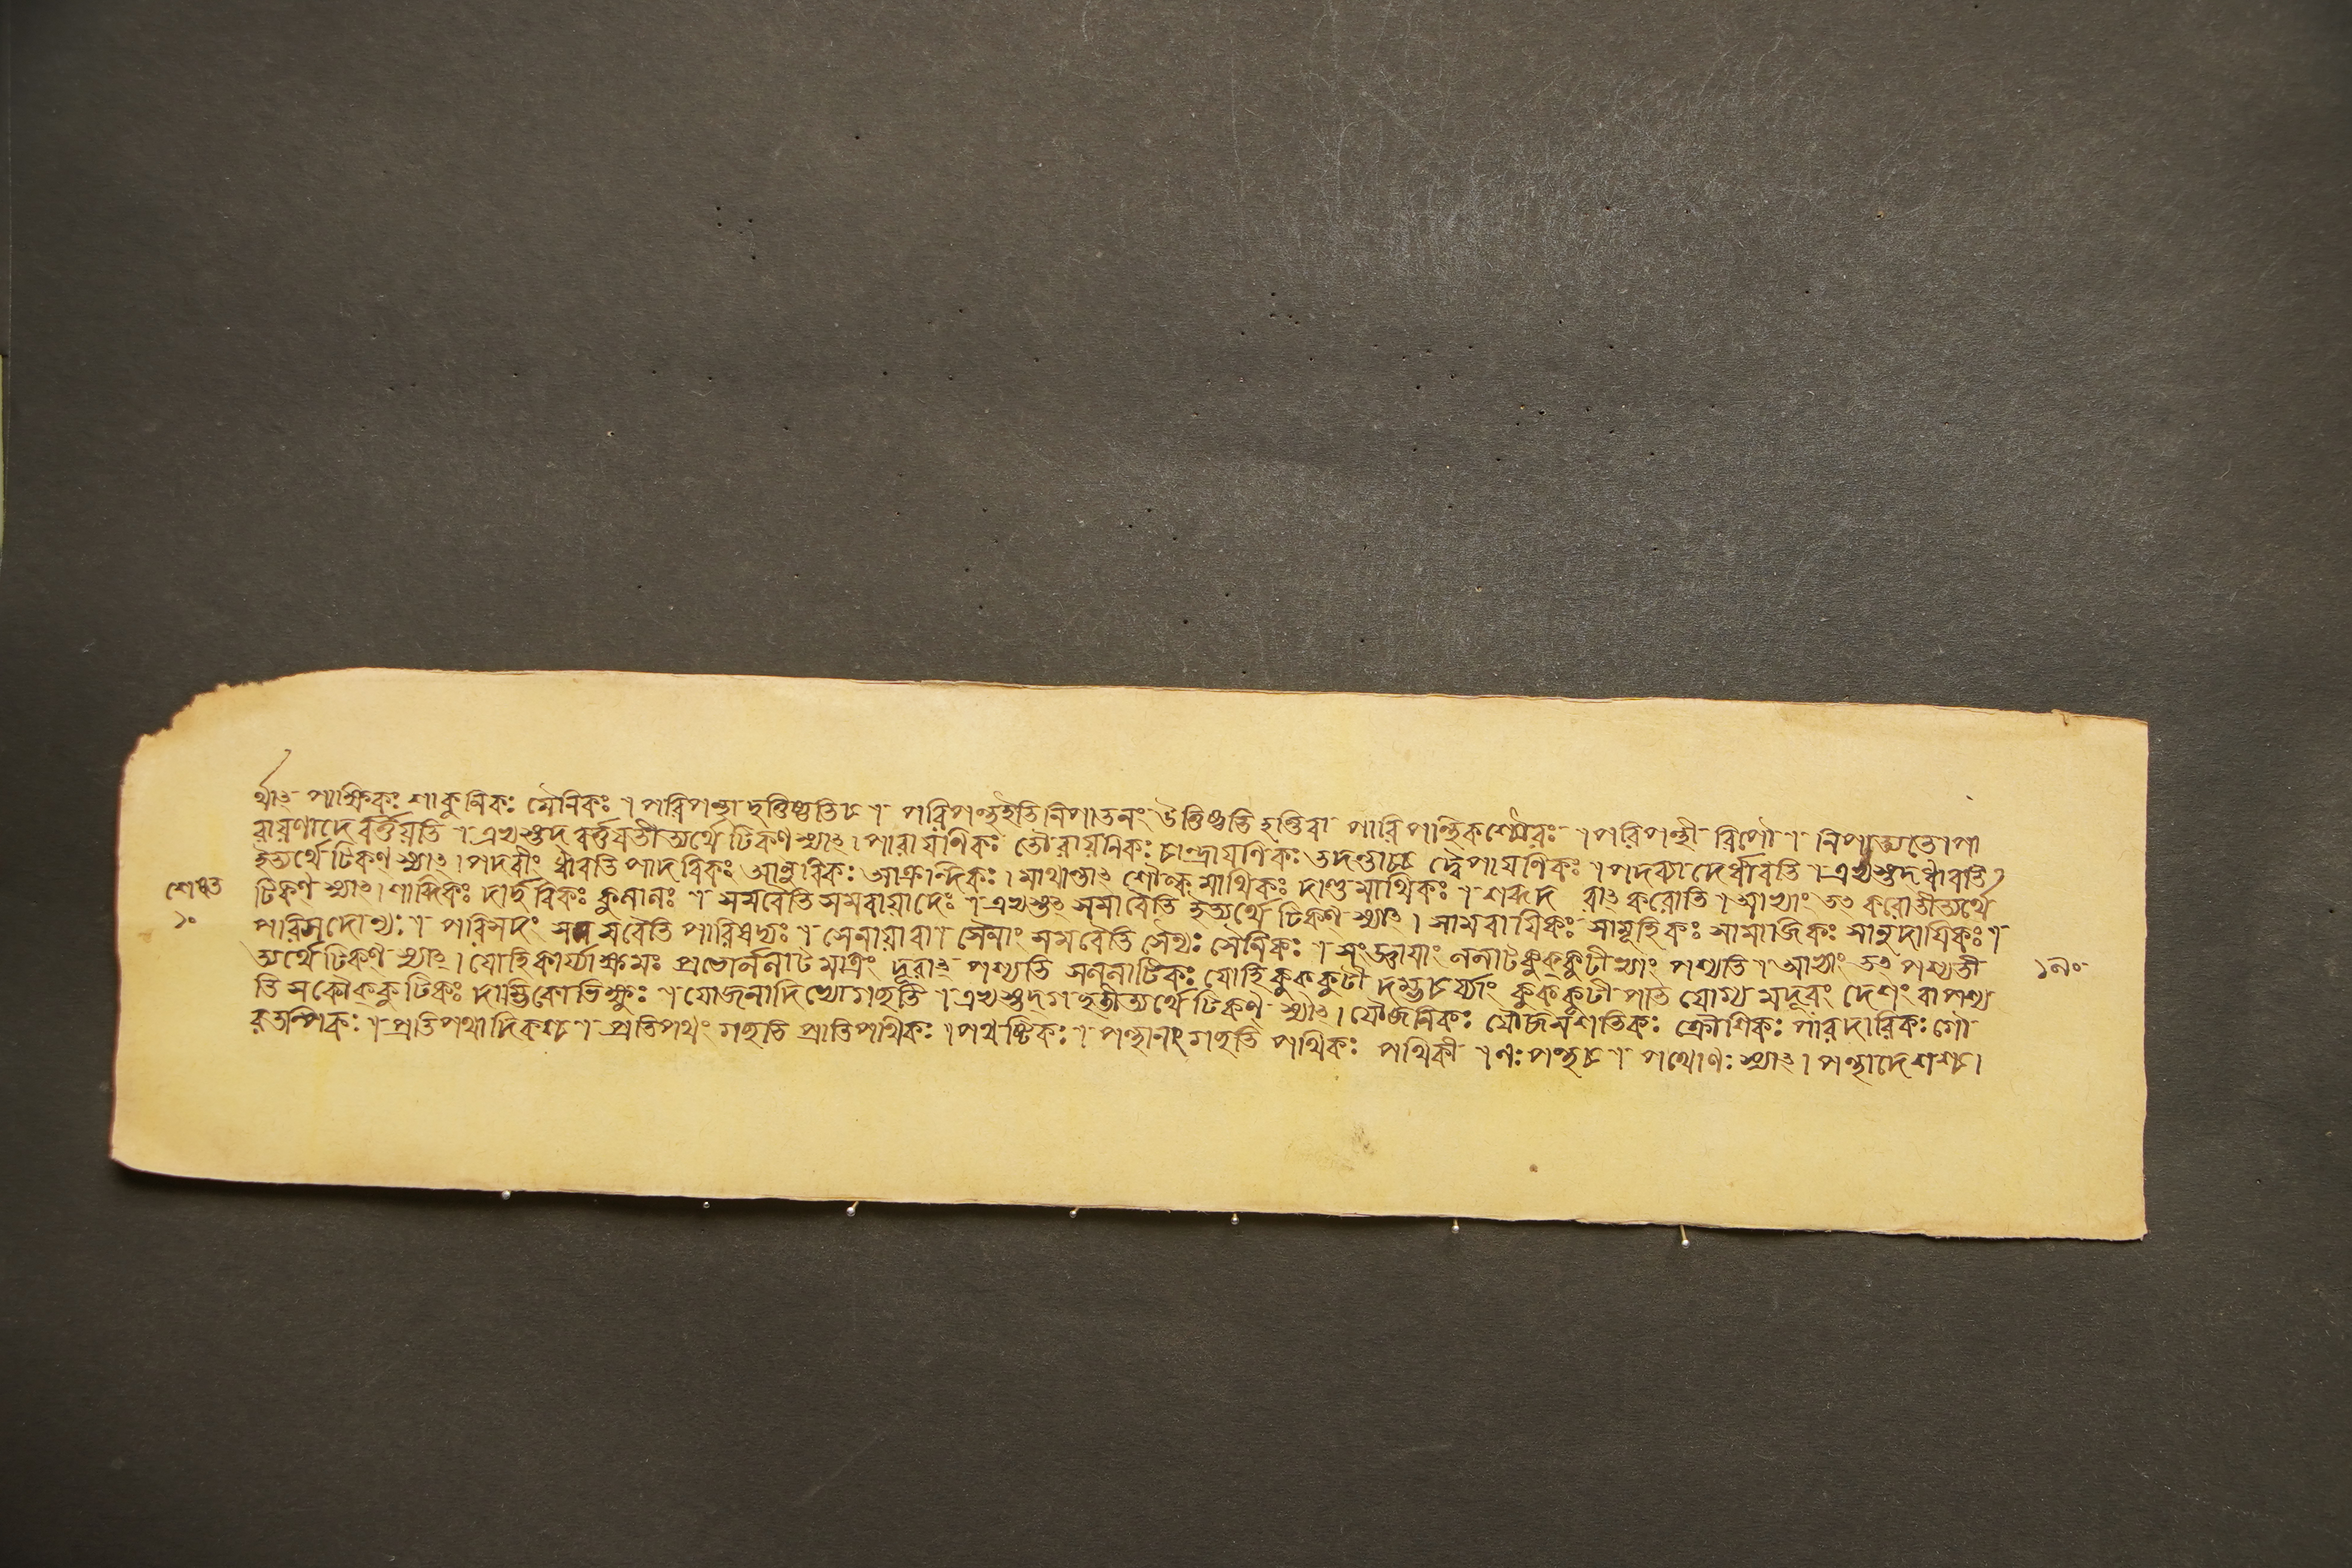 র্থাৎ পাক্ষিকঃ শাকুনিকঃ মৈনিকঃ । পরিপন্থা দ্বন্তিষ্ঠতিচ । পরিপন্থইতি নিপাতনং উত্তিষ্ঠতি হন্তিবা পারিপান্থিকশ্চৌরঃ । পরিপন্থী রিপৌ । নিপাত্যতে । পা
রায়ণাদে বর্ত্তয়তি । এভ্যস্তদ বর্ত্তয়তীত্যর্থে টিকণ স্যাৎ । পারায়ণিকঃ তৌরায়নিকঃ চান্দ্রায়ণিকঃ তদন্তাচ্চ দ্বৈপায়ণিকঃ । পদব্যাদের্ধাবতি । এভ্যস্তদ ধাবতি
ইত্যর্থে টিকণ স্যাৎ । পদবীং ধাবতি পাদবিকঃ আনুবিকঃ আক্রান্দিকঃ । মাথান্তাৎ শৌল্ক মাথিকঃ দাণ্ড মাথিকঃ । শব্দদ রাৎ করোতি । আভ্যাং তৎ করোতীত্যর্থে
টিকণ স্যাৎ । শাব্দিকঃ দার্দুরিকঃ কুলালঃ । সমবৈতি সমবায়াদেঃ । এভ্যস্তৎ সমাবৈতি ইত্যর্থে টিকণ স্যাৎ । সামবায়িকঃ সামূহিকঃ সামাজিকঃ সামুদায়িকঃ ।
পারিসদোণ্যঃ । পরিসদং সমবৈতি পারিষদ্যঃ । সেনায়াবা । সেনাং সমবৈতি সৈন্যঃ সৈনিকঃ । সংজ্ঞায়াং ললাটকুক্কুটীভ্যাং পশ্যতি । আভ্যাং তৎ পশ্যতী
ত্যর্থে টিকণ স্যাৎ । যোহি কার্য্যাক্ষমঃ প্রভোর্ললাট মাত্রং দূরাৎ পশ্যতি সললাটিকঃ যোহি কুক্কুটী দম্ভচর্য্যাং কুক্কুটী পাত যোগ্য মদূরং দেশং বা পশ্য
তি সকৌক্কুটিকঃ দাম্ভিকোভিক্ষুঃ । যোজনাদিভ্যোগচ্ছতি । এভ্যস্তদগচ্ছতীত্যর্থে টিকণ স্যাৎ । যৌজনিকঃ যৌজনশতিকঃ ক্রৌশিকঃ পারদারিকঃ গৌ
রুতল্পিকঃ । প্রতিপথাদিকশ্চ । প্রতিপথং গচ্ছতি প্রাতিপথিকঃ । পথষ্টিকঃ । পন্থানং গচ্ছতি পথিকঃ পথিকী । ণঃ পন্থচ । পথোণঃ স্যাৎ । পন্থাদেশশ্চ ।
১০
১৯০